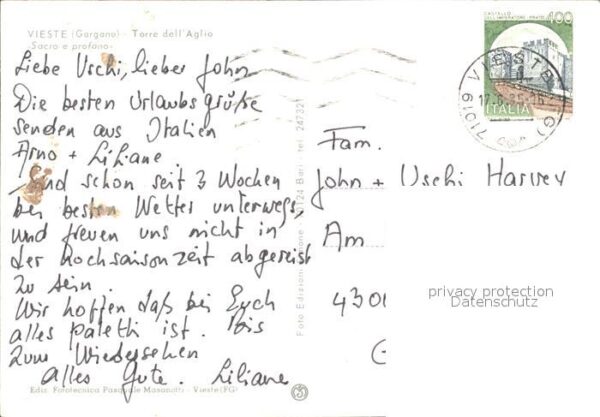 VIESTE (Gargano) - Torre dell'Aglio
-Sacro e profano-
Liebe Uschi, lieber John
Die besten Urlaubsgrüße
senden aus Italien
Arno + Liliane
Sind schon seit 3 Wochen
bei besten Wetter unterwegs,
und freuen uns nicht in
der Hochsaisonzeit abgereist
zu sein.
Wir hoffen daß bei Euch
alles paletti ist. Bis
Zum Wiedersehen
Alles Gute. Liliane
Ediz. Fototecnica Pasquale - Vieste (FG)
Foto Edizioni 70124 Bari - tel. 247321
CASTELLO
400
ITALIA
VIESTE (FG)
71019
Fam.
John + Uschi Harvey
Am
4300
privacy protection
Datenschutz